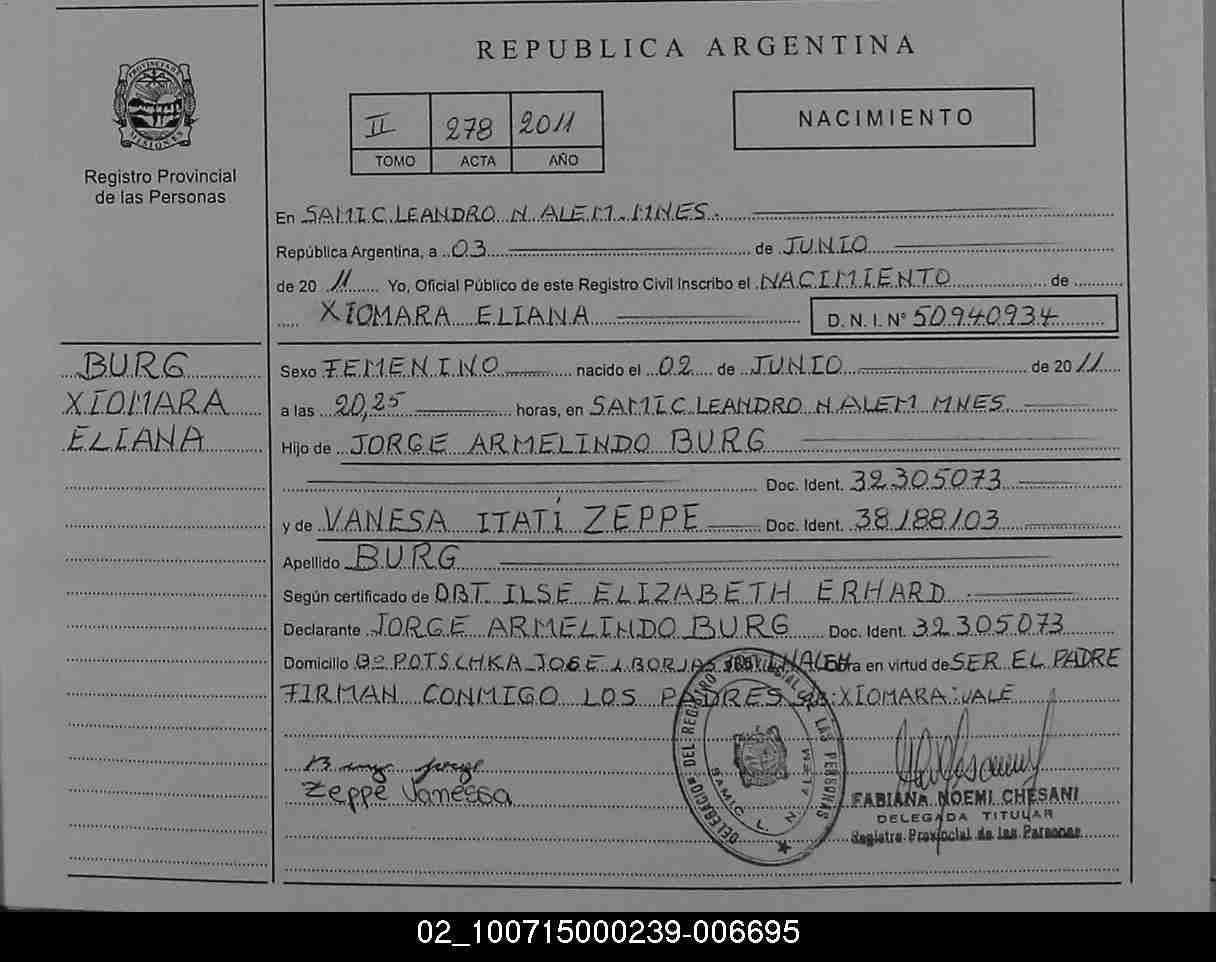 REPUBLICA ARGENTINA
PROVINCIA DE MISIONES
Registro Provincial
de las Personas
II 278 2011
TOMO ACTA AÑO
NACIMIENTO
En SAMIC LEANDRO N. ALEM - MNES.
República Argentina, a 03 de JUNIO
de 20 11 Yo, Oficial Público de este Registro Civil Inscribo el NACIMIENTO de
XIOMARA ELIANA D. N. I. N° 50940934
BURG
XIOMARA
ELIANA
Sexo FEMENINO nacido el 02 de JUNIO de 20 11
a las 20,25 horas, en SAMIC LEANDRO N ALEM MNES
Hijo de JORGE ARMELINDO BURG
Doc. Ident. 32305073
y de VANESA ITATÍ ZEPPE Doc. Ident. 38188103
Apellido BURG
Según certificado de OBT ILSE ELIZABETH ERHARD
Declarante JORGE ARMELINDO BURG Doc. Ident. 32305073
Domicilio Bº POTSCHKA JOSE J. BORJAS L N ALEM Obra en virtud de SER EL PADRE
FIRMAN CONMIGO LOS PADRES XIOMARA: VALE
Burg Jorge
Zeppe Vanessa
DELEGACION DEL REGISTRO PROVINCIAL DE LAS PERSONAS
SAMIC L. N. ALEM
FABIANA NOEMI CHESANI
DELEGADA TITULAR
Registro Provincial de las Personas
02_100715000239-006695